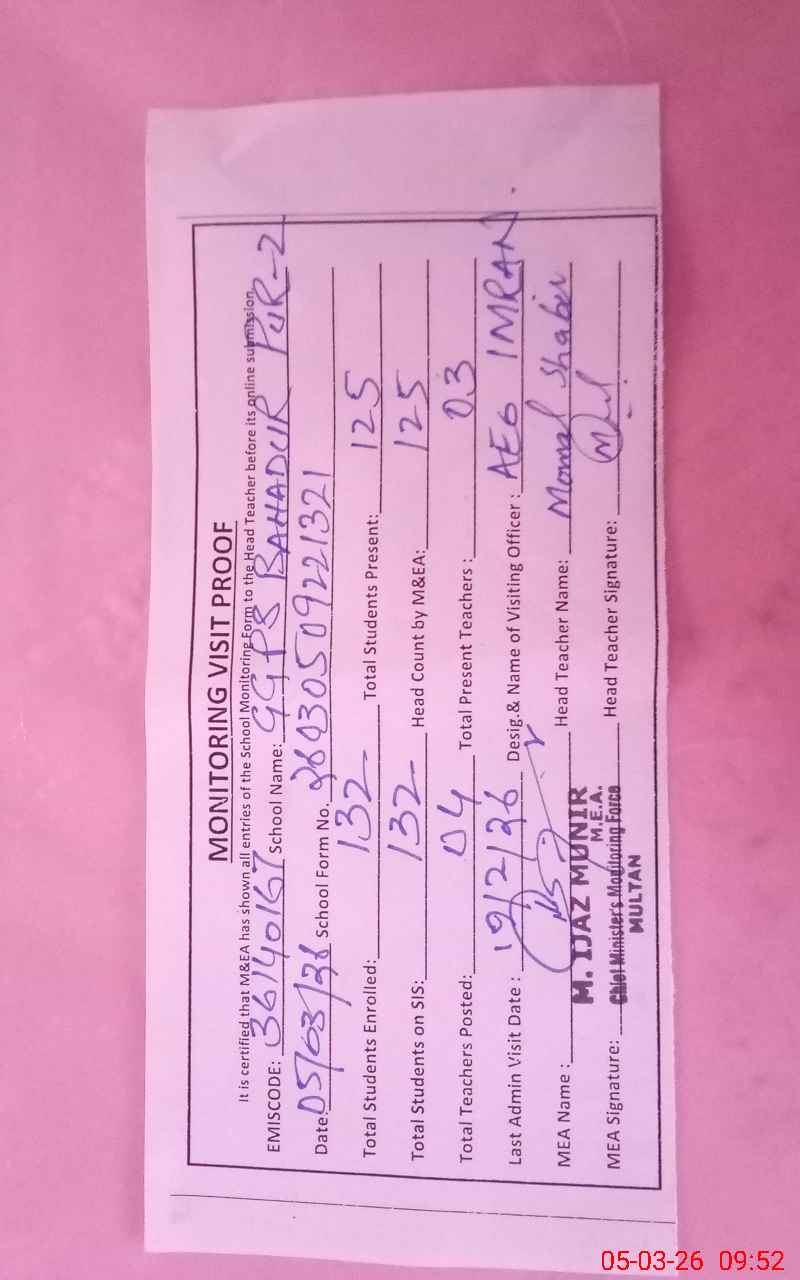 MONITORING VISIT PROOF
It is certified that M&EA has shown all entries of the School Monitoring Form to the Head Teacher before its online submission
EMISCODE: 36140167 School Name: GGPS BAHADUR PUR-2
Date: 05/03/26 School Form No. 260305092 21321
Total Students Enrolled: 132 Total Students Present: 125
Total Students on SIS: 132 Head Count by M&EA: 125
Total Teachers Posted: 04 Total Present Teachers : 03
Last Admin Visit Date : 19/2/26 Desig.& Name of Visiting Officer : AEO IMRAN
MEA Name : Head Teacher Name: Shabir
M. IJAZ MUNIR
M.E.A.
MEA Signature: Chief Minister's Monitoring Force Head Teacher Signature:
MULTAN
05-03-26 09:52